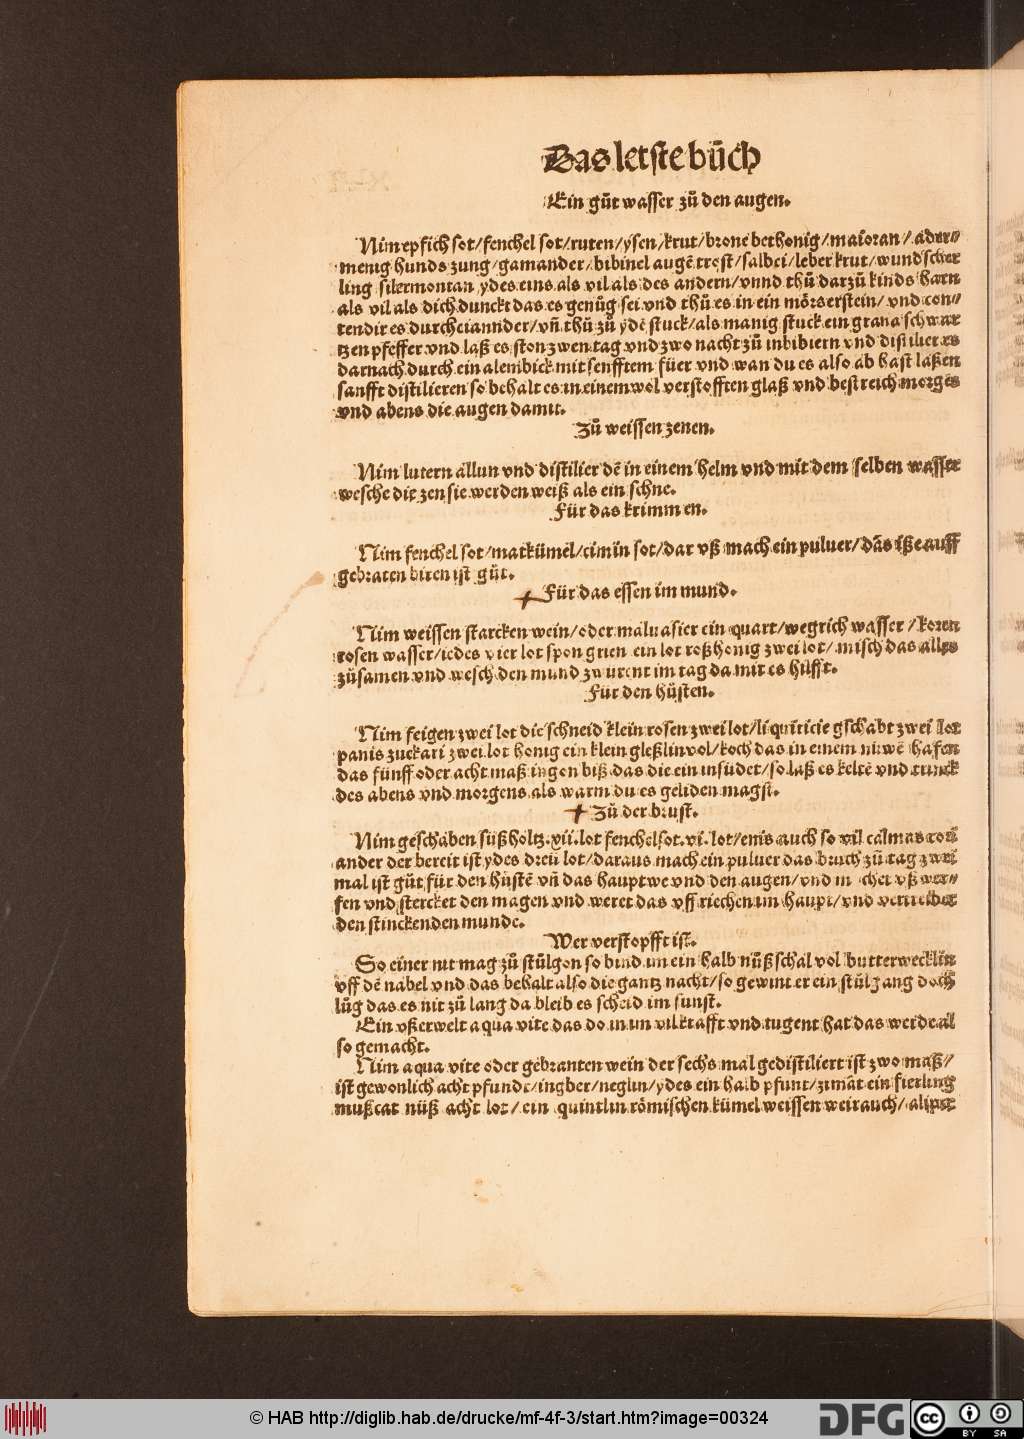 Das letste bůch
Ein gůt wasser zů den augen.
Nim epfich sot/fenchel sot/ruten/ysen/krut/brone bethonig/maioran/ ader//
menig hunds zung/gamander/bibinel augē trost/salbei/leber krut/wundscher
ling silermontan ydes eins als vil als des andern/vnnd thů darzů kinds harn
als vil als dich dunckt das es genůg sei vnd thů es in ein mörserstein/vnd con//
tendir es durcheiannder/vñ thů zů ydē stuck/als manig stuck ein grana schwar
tzen pfeffer vnd laß es ston zwen tag vnd zwo nacht zů inbibiern vnd distilier es
darnach durch ein alembick mit senfftem füer vnd wan du es also ab hast laßen
sanfft distilieren so behalt es in einem wol verstofften glaß vnd bestreich morges
vnd abens die augen damit.
Zů weissen zenen.
Nim lutern allun vnd distilier dē in einem helm vnd mit dem selben wasser
wesche die zen sie werden weiß als ein schne.
Für das krimmen.
Nim fenchel sot/matkümel/cimin sot/dar vß mach ein puluer/dās iße auff
gebraten biren ist gůt.
Für das essen im mund.
Nim weissen starcken wein/oder maluasier ein quart/wegrich wasser /koren
rosen wasser/iedes vier lot spongrien ein lot roßhonig zwei lot/ misch das alles
zůsamen vnd wesch den mund zwurent im tag da mit es hilfft.
Für den hůsten.
Nim feigen zwei lot die schneid klein rosen zwei lot/liquiricie gschabt zwei lot
panis zuckari zwei lot honig ein klein gleßlin vol/koch das in einem nuwē hafen
das fünff oder acht maß ingon biß das die ein insüdet/so laß es keltē vnd trinck
des abens vnd morgens als warm du es geliden magst.
Zů der brust.
Nim geschaben süßholtz.xii.lot fenchelsot.vi.lot/enis auch so vil calmas cori
ander der bereit ist ydes dreü lot/daraus mach ein puluer das bruch zů tag zwei
mal ist gůt für den hůstē vñ das hauptwe vnd den augen/vnd machet vß wer//
fen vnd stercket den magen vnd weret das vff riechen im haupt/vnd vertreibet
den stinckenden munde.
Wer verstopfft ist.
So einer nit mag zů stůlgon so bind im ein halb nůßschal vol butterwecklin
vff dē nabel vnd das behalt also die gantz nacht/so gewint er ein stůlgang doch
lůg das es nit zů lang da bleib es scheid im sunst.
Ein vßerwelt aqua vite das do in im vil krafft vnd tugent hat das werde al
so gemacht.
Nim aqua vite oder gebranten wein der sechs mal gedistiliert ist zwo maß/
ist gewonlich acht pfunde/ingber/neglin/ydes ein halb pfunt/zimāt ein fierling
mußcat nüß acht lot/ein quintlin römischen kümel weissen weirauch/
© HAB http://diglib.hab.de/drucke/mf-4f-3/start.htm?image=00324
DFG
cc
BY SA